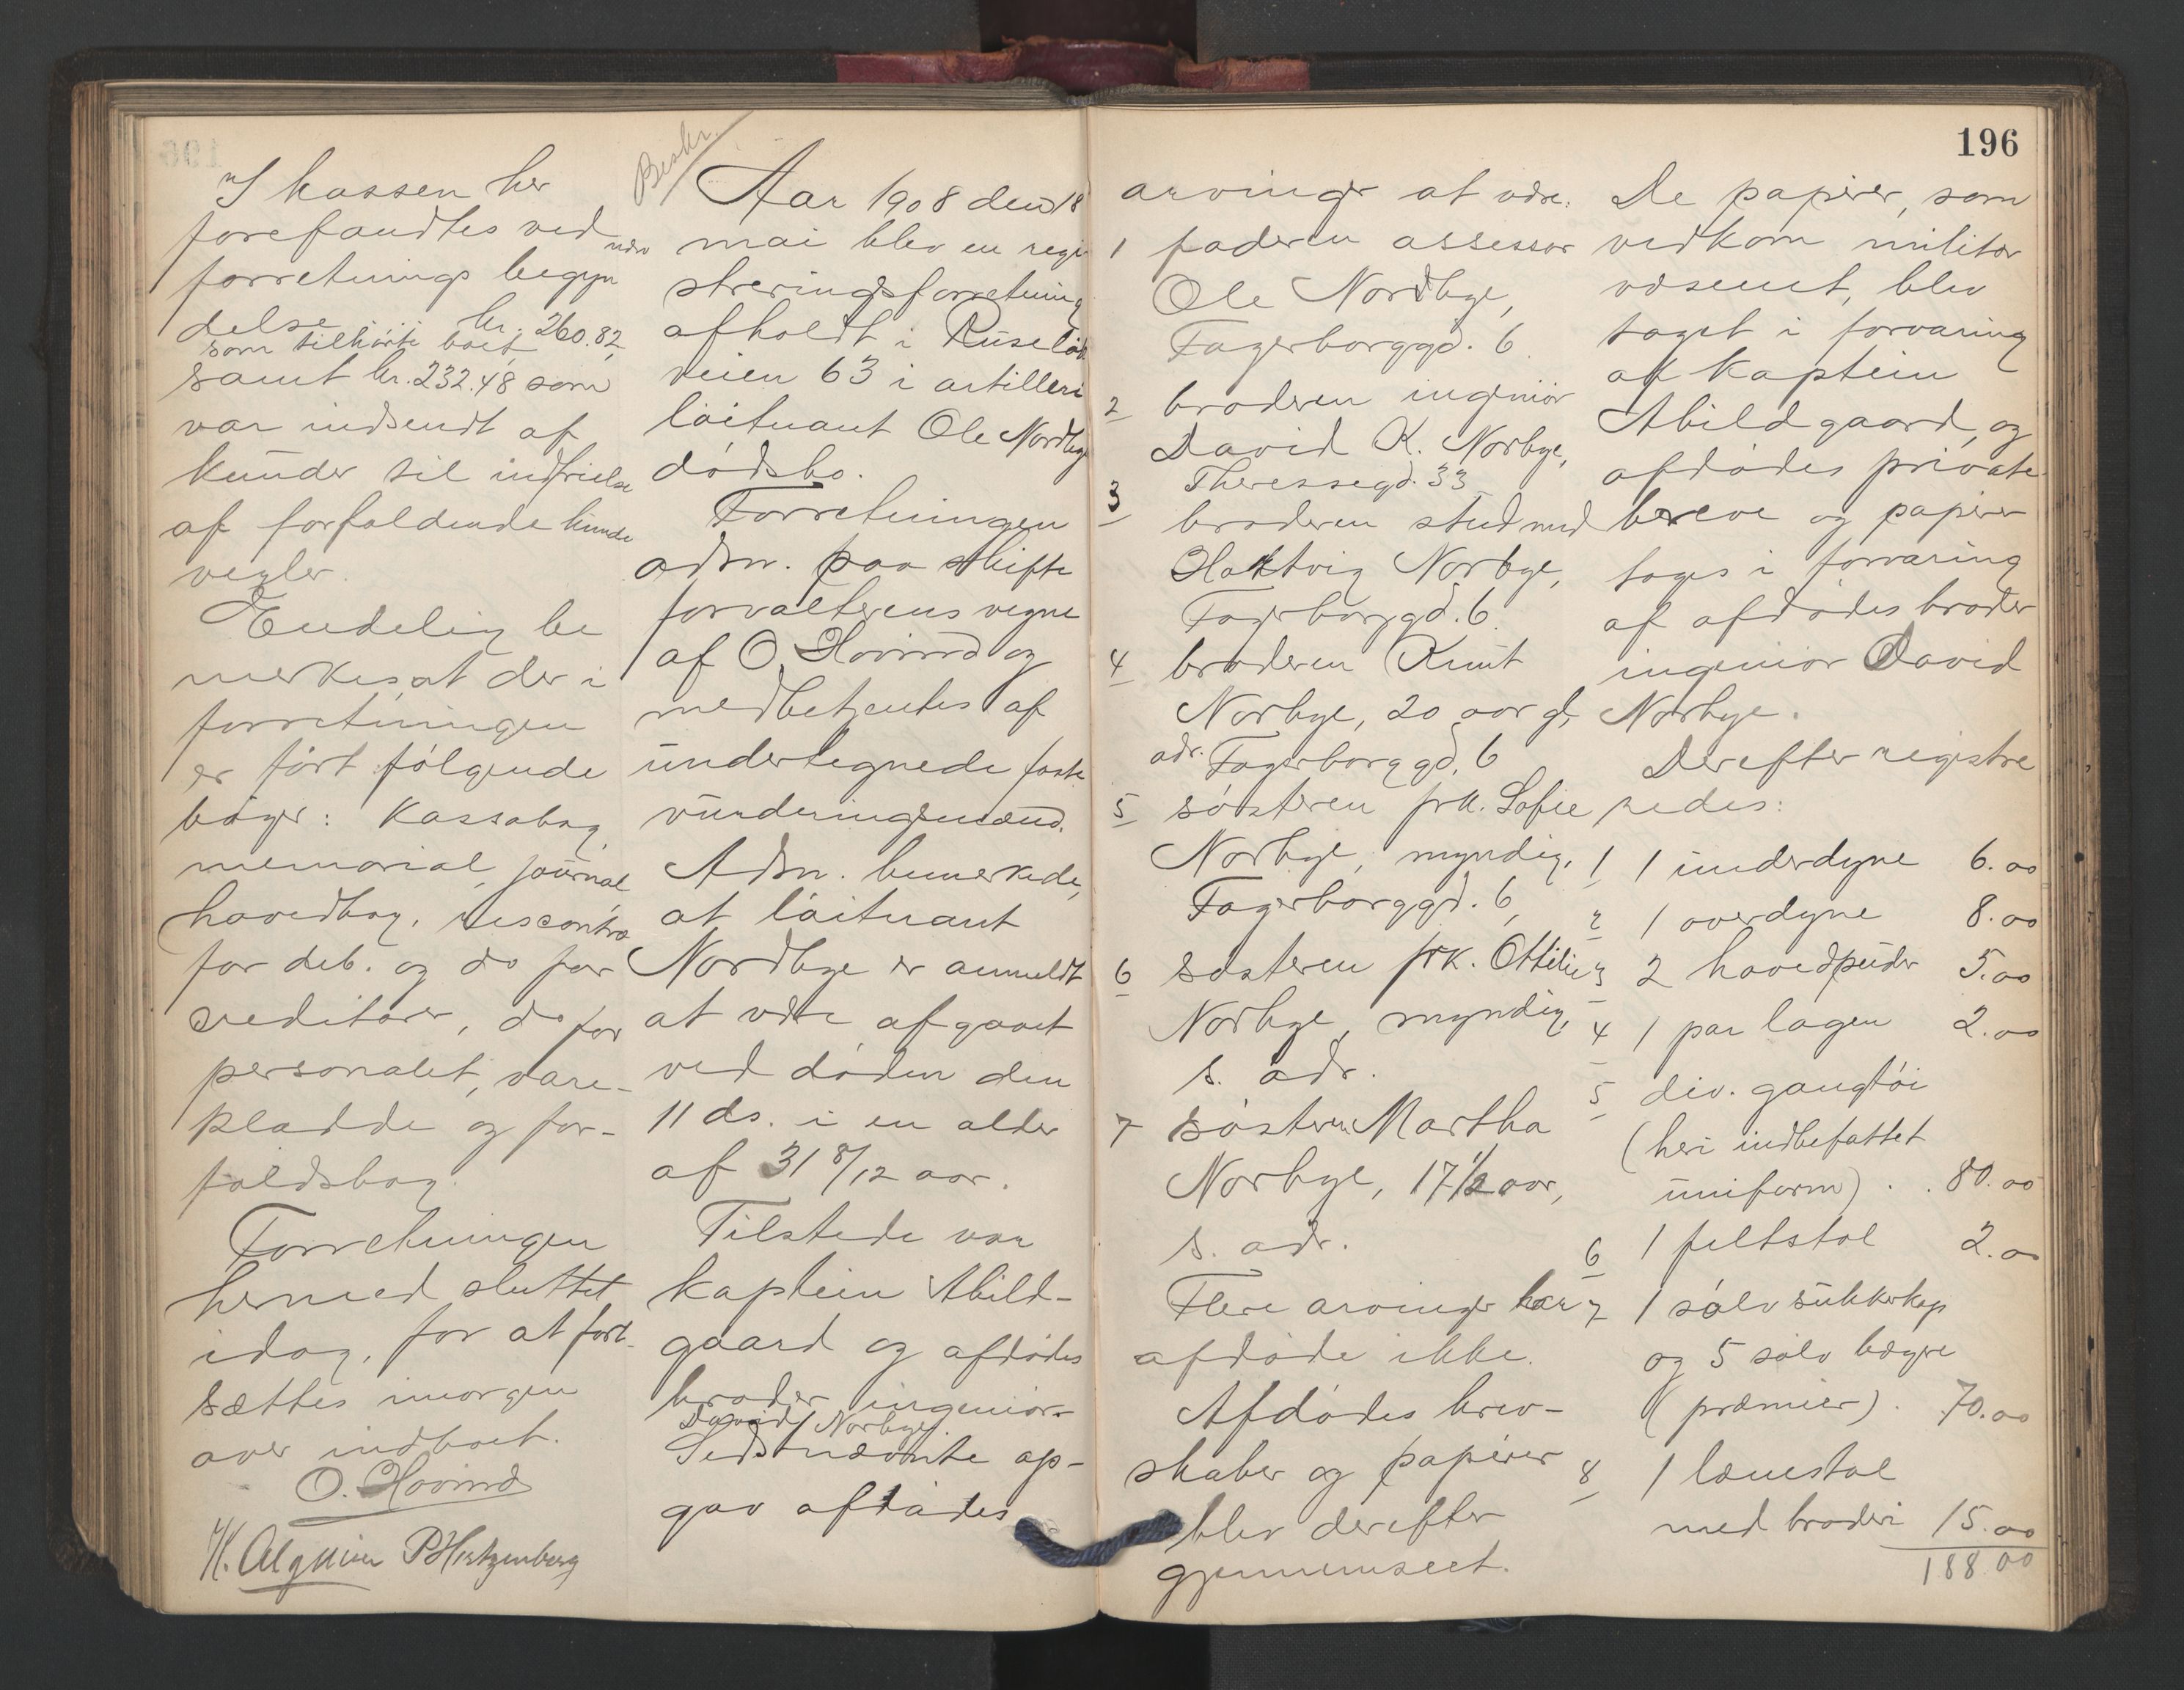 I kassen her
forefandtes ved nærv
forretnings begyn
delse kr. 260.82,
som tilhørte boet,
samt kr. 232.48 som
var indsendt af
kunder til indfrielse
af forfaldende kunde
vexler.
Endelig be
merkes, at der i
forretningen
er ført følgende
bøger: Kassabog,
memorial, journal,
hovedbog, riscontra
for deb. og do for
creditorer, do for
personalet, vare-
kladde og for-
faldsbog.
Forretningen
hermed sluttet
idag, for at fort-
sættes imorgen
over indboet.
O. Hovind
H. Algruen P Hertzenberg
Beskr.
Aar 1908 den 18
mai blev en regi
streringsforretning
afholdt i Ruseløk
veien 63 i artilleri
løitnant Ole Nordbye
dødsbo.
Forretningen
adm. paa skifte
forvalterens vegne
af O. Hovind og
medbetjentes af
undertegnede faste
vurderingsmænd.
Adm. bemerkede,
at løitnant
Nordbye er anmeldt
at være afgaaet
ved døden den
11 ds. i en alder
af 31 8/12 aar.
Tilstede var
kaptein Abild-
gaard og afdødes
broder ingeniør
David Norbye.
Sidstnævnte op-
gav afdødes
196
arvinger at være:
1 faderen assessor
Ole Nordbye,
Fagerborggd. 6.
2 broderen ingeniør
David K. Norbye,
Theressegd. 33
3 broderen stud med
Haktvig Norbye,
Fagerborggd. 6.
4 broderen Knut
Norbye, 20 aar gl,
adr. Fagerborggd. 6
5 søsteren frk. Sofie
Norbye, myndig,
Fagerborggd. 6,
6 søsteren frk. Ottilie
Norbye, myndig,
s. adr.
7 søsteren Martha
Norbye, 17 1/2 aar,
s. adr.
Flere arvinger har
afdøde ikke.
Afdødes brev-
skaber og papirer
blev derefter
gjennemseet.
De papirer, som
vedkom militær
væsenet, blev
taget i forvaring
af kaptein
Abildgaard, og
afdødes private
breve og papirer
toges i forvaring
af afdødes broder
ingeniør David
Norbye.
Derefter registre
redes:
1 1 underdyne 6.00
2 1 overdyne 8.00
3 2 hovedpuder 5.00
4 1 par lagen 2.00
5 div. gangtøi
(heri indbefattet
uniform) . . 80.00
6 1 feltstol 2.00
7 1 sølv sukkerkop
og 5 sølv bægre
(præmier) . 70.00
8 1 lænestol
med broderi 15.00
188.00